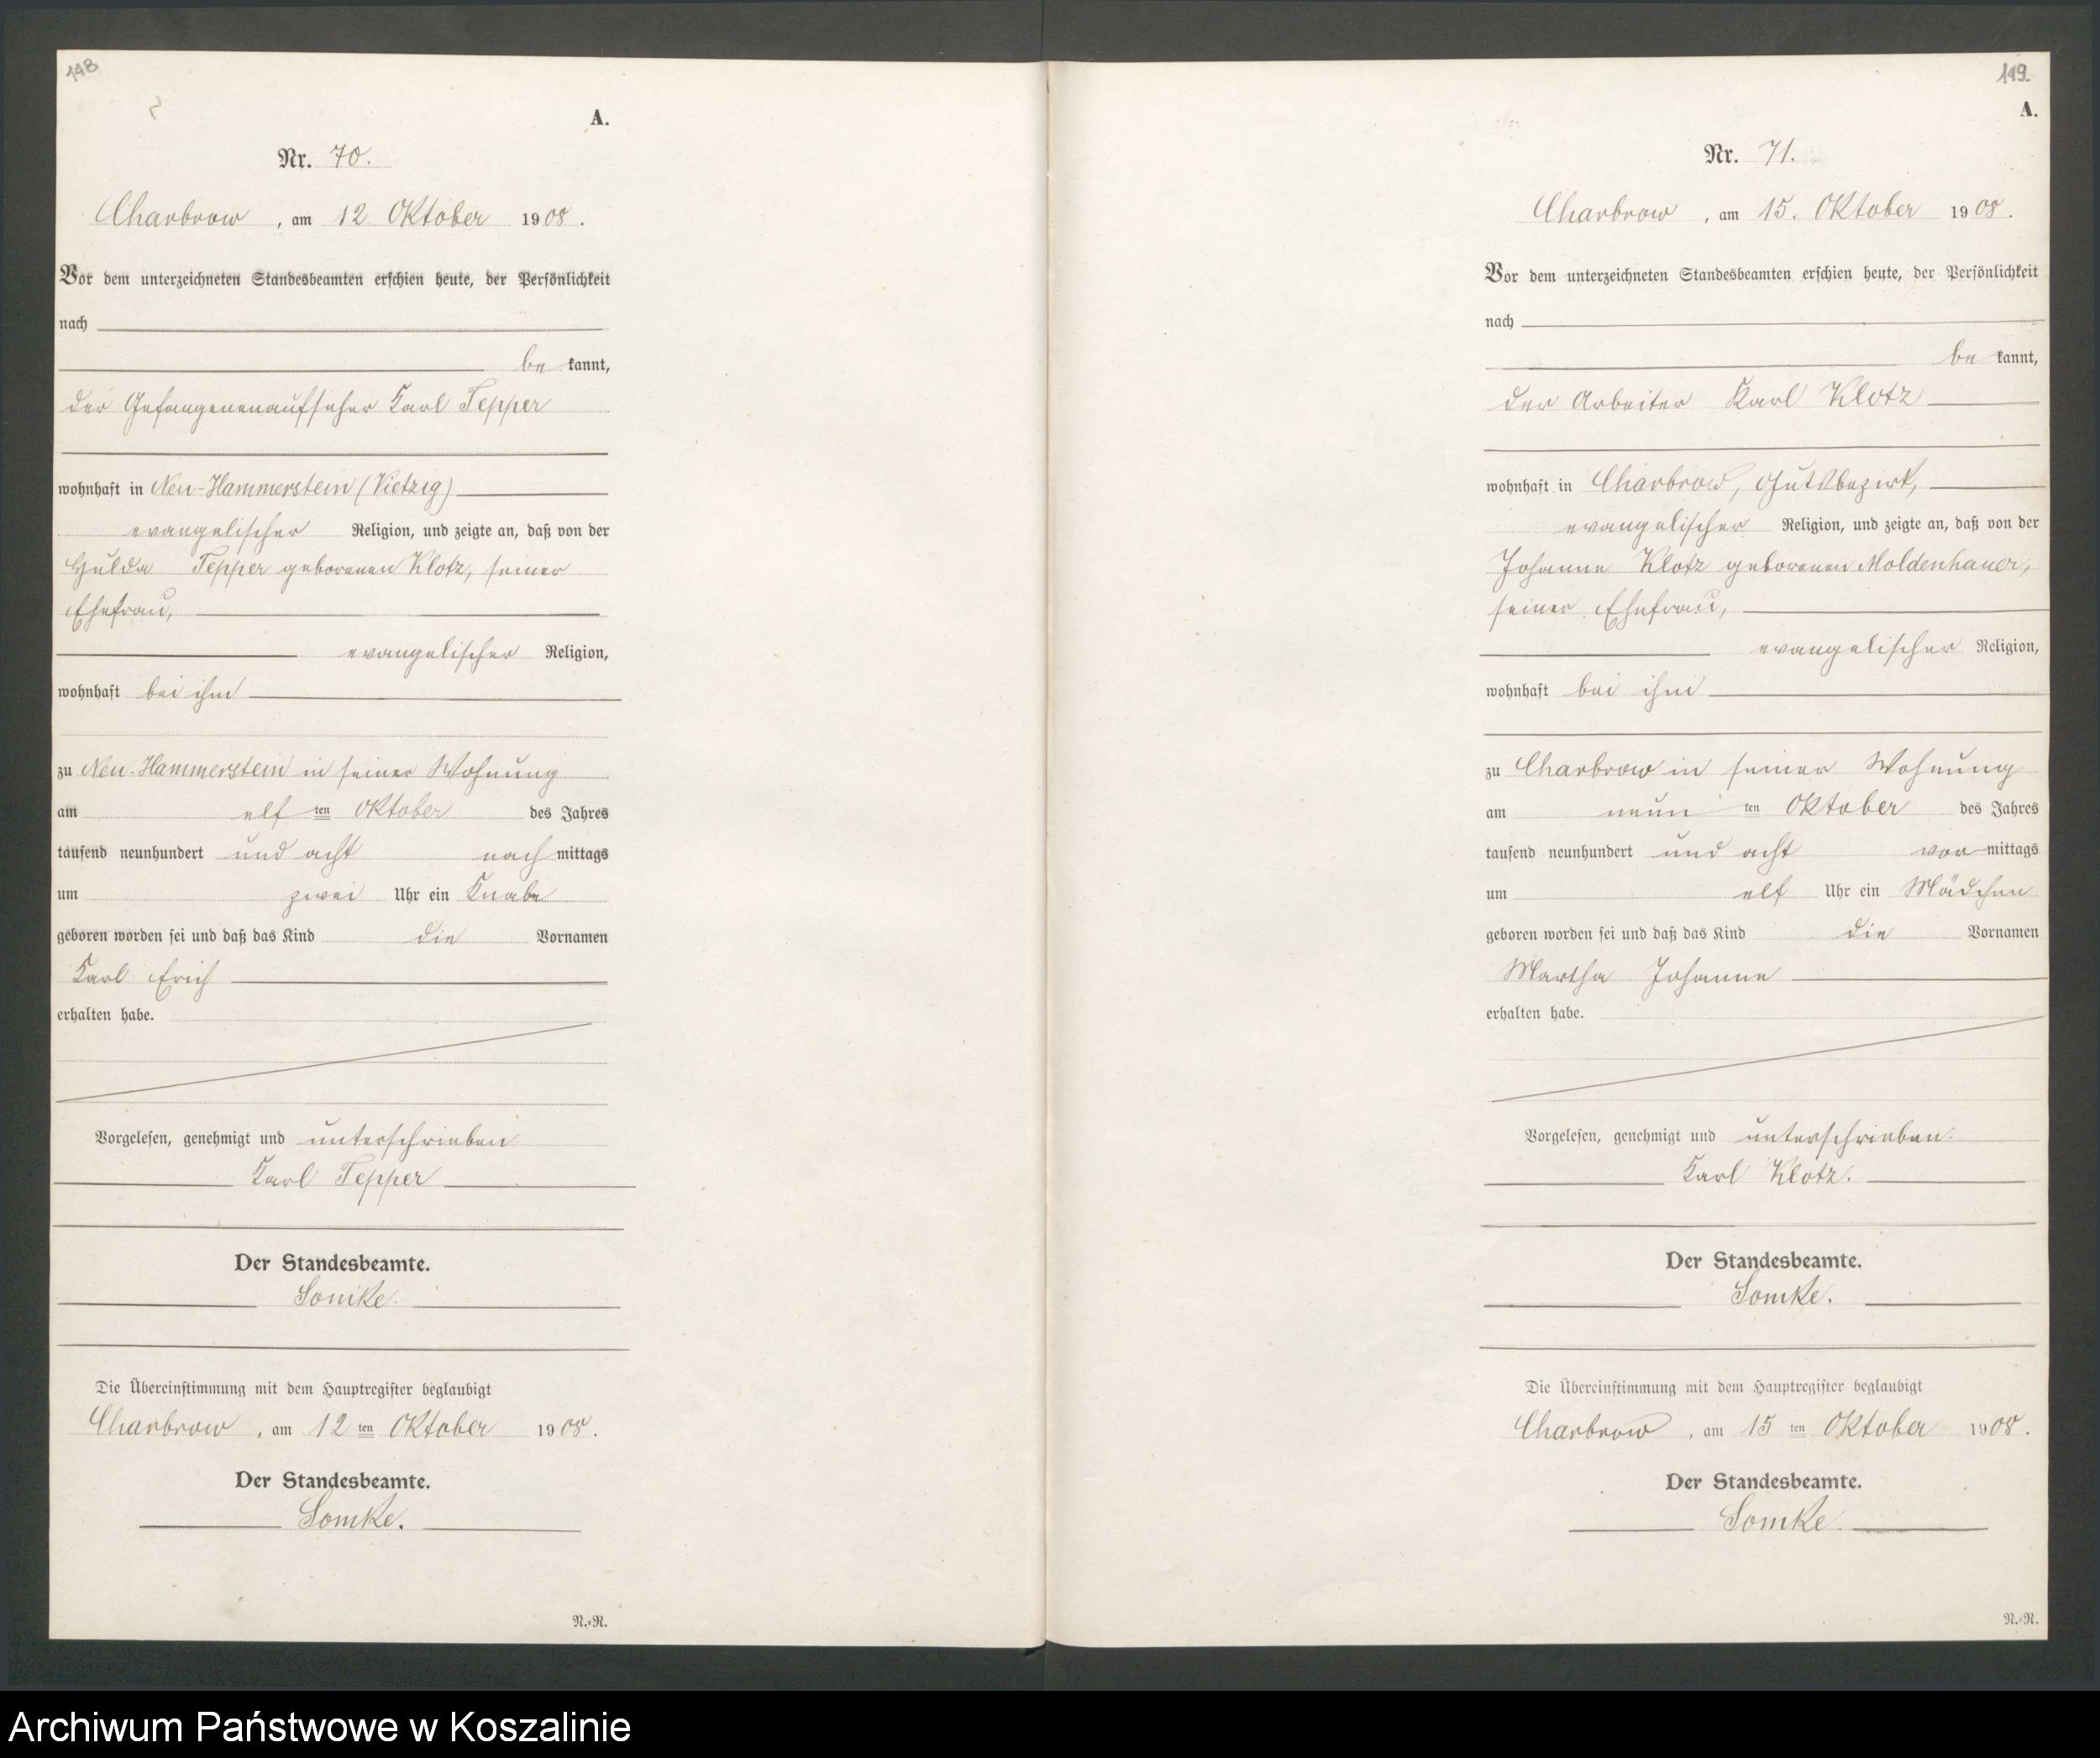 148
A.
Nr. 70.
Charbrow, am 12 Oktober 1908.
Vor dem unterzeichneten Standesbeamten erschien heute, der Persönlichkeit
nach
be kannt,
der Gefangenenaufseher Karl Tepper
wohnhaft in Neu-Hammerstein (Vietzig)
evangelischer Religion, und zeigte an, daß von der
Hulda Tepper geborenen Klotz, seiner
Ehefrau,
evangelischer Religion,
wohnhaft bei ihm
zu Neu-Hammerstein in seiner Wohnung
am elf ten Oktober des Jahres
tausend neunhundert und acht nach mittags
um zwei Uhr ein Knabe
geboren worden sei und daß das Kind die Vornamen
Karl Erich
erhalten habe.
Vorgelesen, genehmigt und unterschrieben
Karl Tepper
Der Standesbeamte.
Somke.
Die Übereinstimmung mit dem Hauptregister beglaubigt
Charbrow, am 12 ten Oktober 1908.
Der Standesbeamte.
Somke.
N.=R.
149.
A.
Nr. 71.
Charbrow, am 15. Oktober 1908.
Vor dem unterzeichneten Standesbeamten erschien heute, der Persönlichkeit
nach
be kannt,
der Arbeiter Karl Klotz
wohnhaft in Charbrow, Gutsbezirk,
evangelischer Religion, und zeigte an, daß von der
Johanne Klotz geborenen Moldenhauer,
seiner Ehefrau,
evangelischer Religion,
wohnhaft bei ihm
zu Charbrow in seiner Wohnung
am neun ten Oktober des Jahres
tausend neunhundert und acht vor mittags
um elf Uhr ein Mädchen
geboren worden sei und daß das Kind die Vornamen
Martha Johanne
erhalten habe.
Vorgelesen, genehmigt und unterschrieben.
Karl Klotz.
Der Standesbeamte.
Somke.
Die Übereinstimmung mit dem Hauptregister beglaubigt
Charbrow, am 15 ten Oktober 1908.
Der Standesbeamte.
Somke
N.=R.
Archiwum Państwowe w Koszalinie